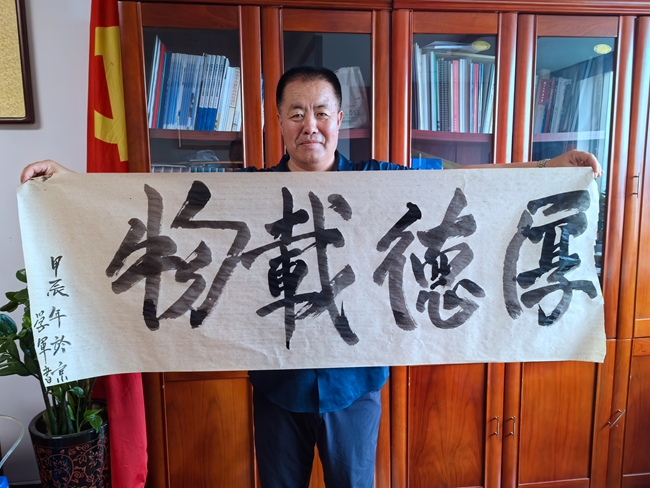 厚德載物
甲辰年於京
学軍書